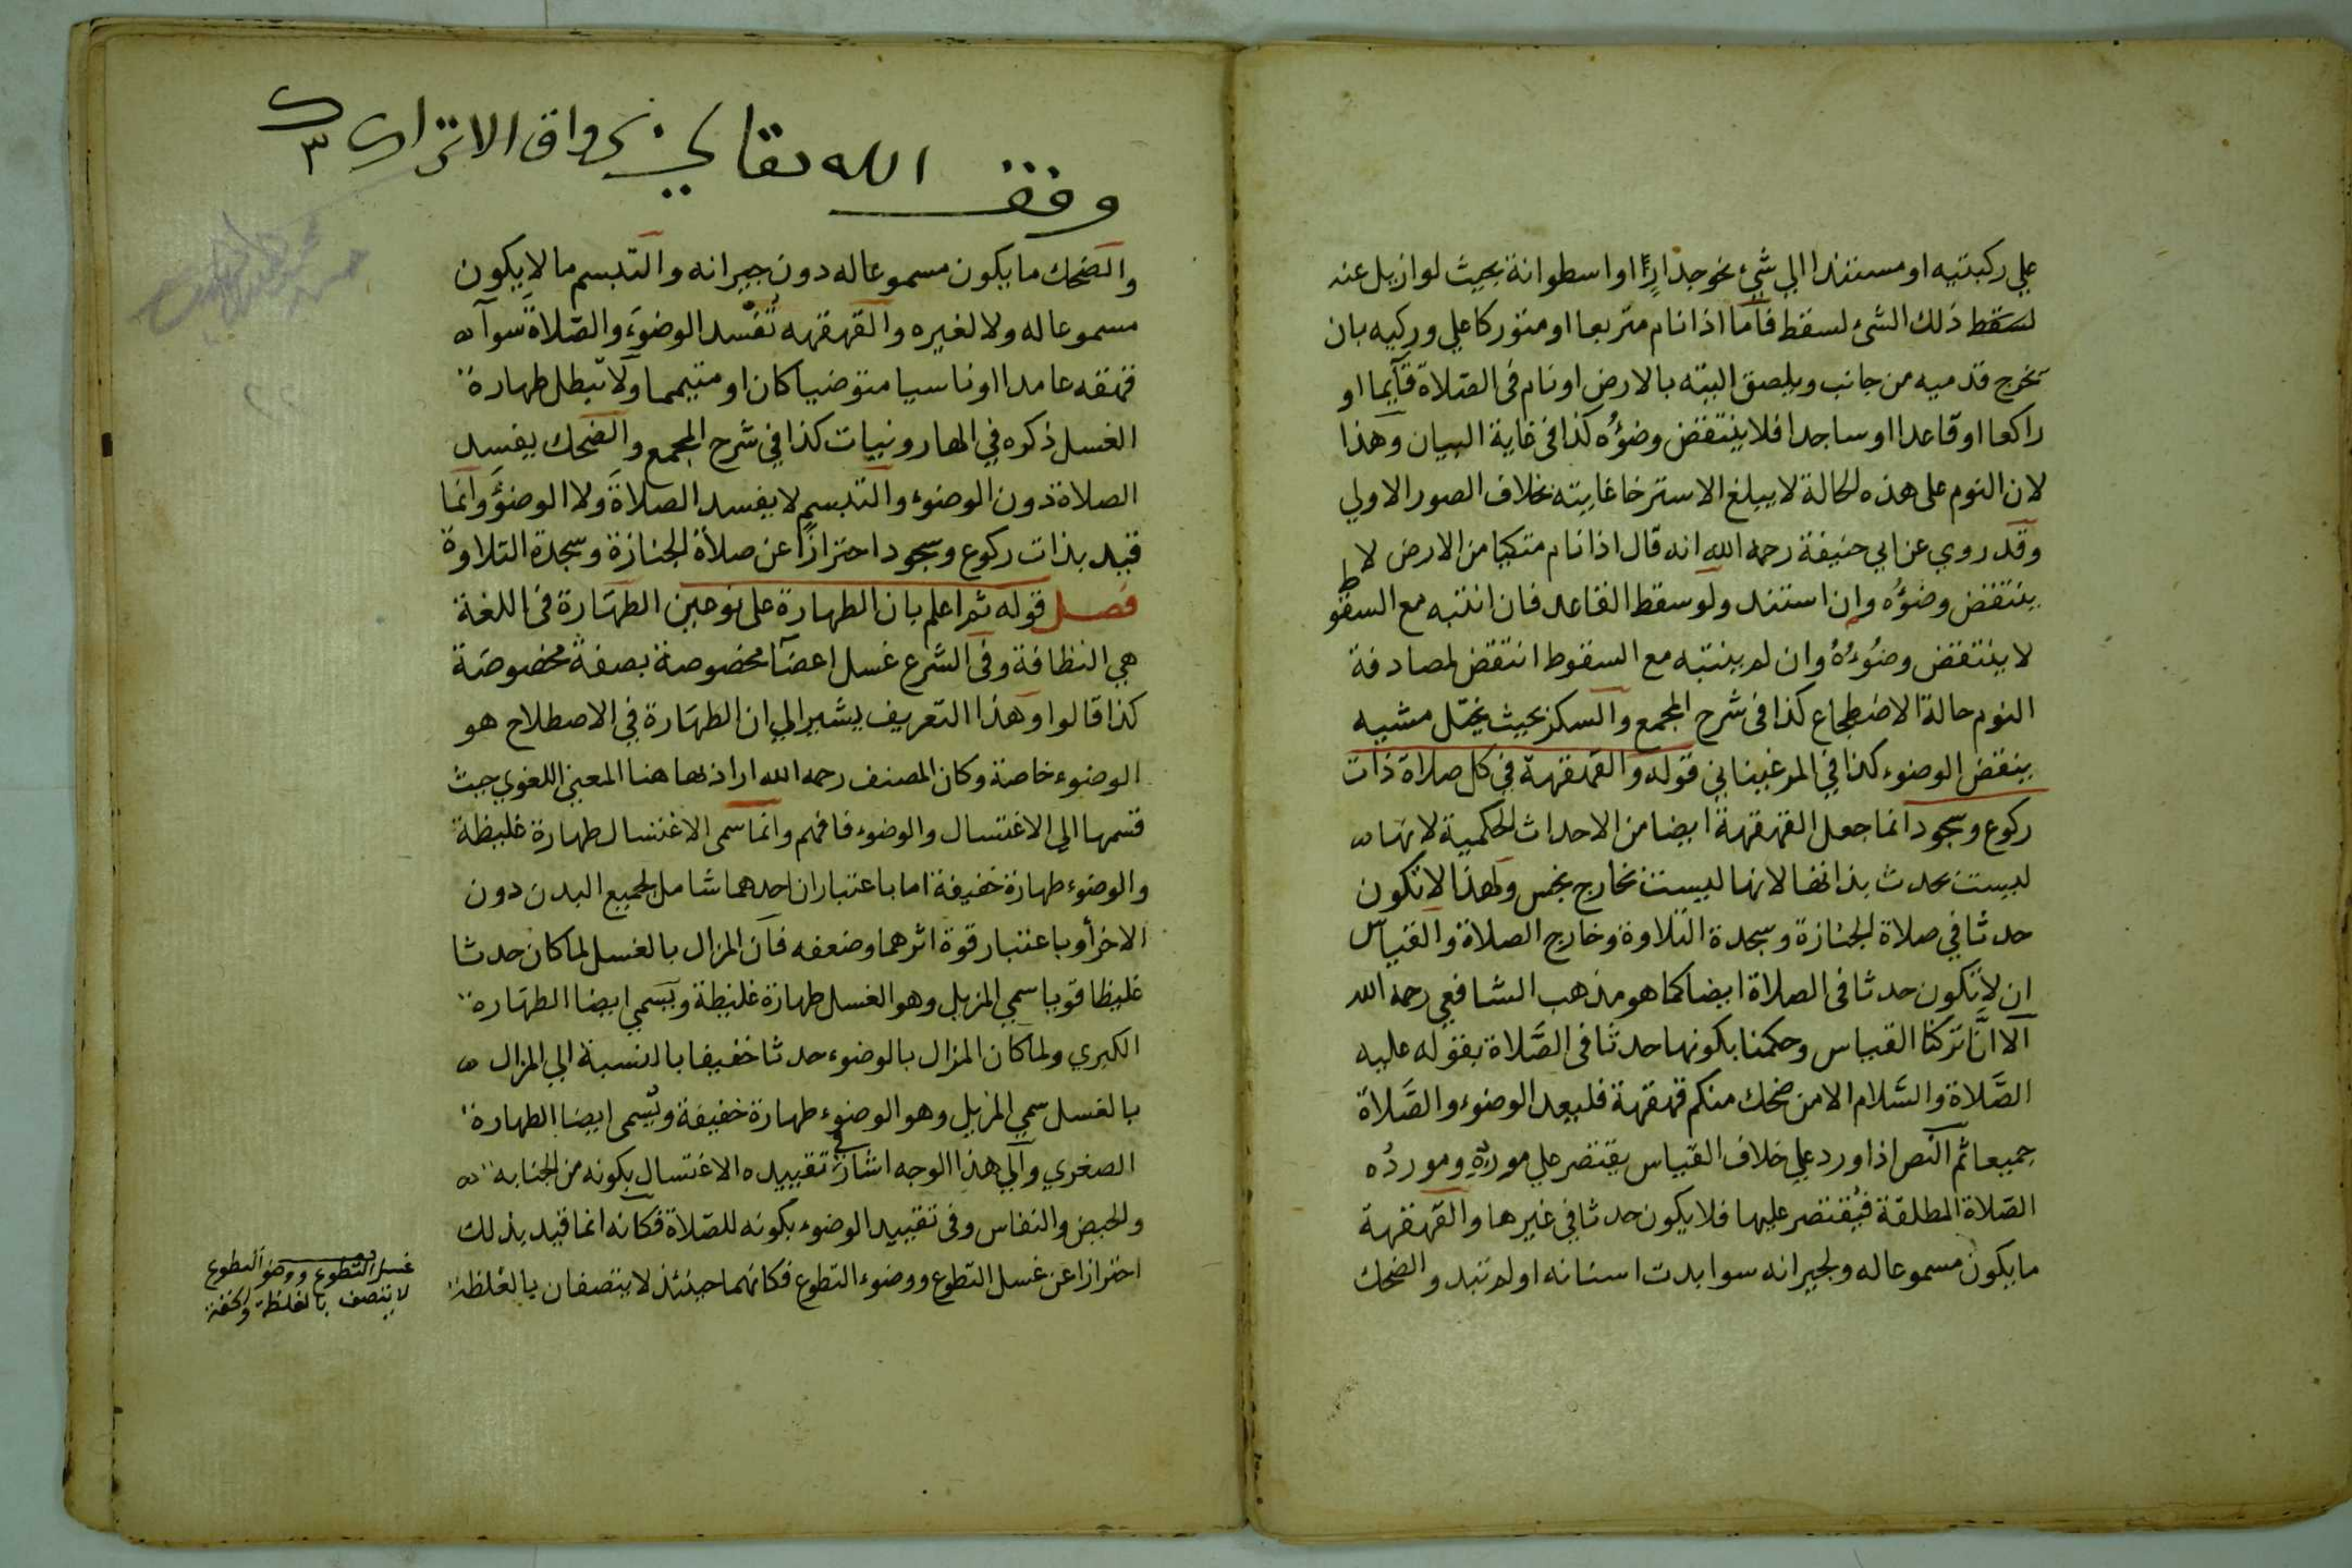 علي ركبتيه او مستندا الي شئ نحو جدارٍ او اسطوانة بحيث لو ازيل عنه
لسقط ذلك الشئ لسقط فاما اذا نام متربعا او متوركا علي وركيه بان
تخرج قدميه من جانب ويلصق اليتيه بالارض او نام فى الصّلاة قآيما او
راكعا او قاعدا او ساجدا فلا ينتقض وضؤُه كذا فى غاية البيان وهذا
لان النوم على هذه الحالة لا يبلغ الاسترخا غايته بخلاف الصور الاولي
وقد روي عن ابي حنيفة رحمه الله انه قال اذا نام متكيا من الارض لا
ينتقض وضؤُه وان استند ولو سقط القاعد فان انتبه مع السقوط
لا ينتقض وضُوءُهُ وان لم ينتبه مع السقوط انتقض لمصادفة
النوم حالة الاضطجاع كذا فى شرح المجمع والسكر بحيث يختل مشيه
ينقض الوضوء كذا في المرغيناني قوله والقهقهة في كل صلاة ذات
ركوع وسجود انما جعل القهقهة ايضا من الاحداث الحكمية لانها
ليست بحدث بذاتها لانها ليست بخارج نجس ولهذا لا تكون
حدثا في صلاة الجنازة وسجدة التلاوة وخارج الصلاة والقياس
ان لا تكون حدثا فى الصلاة ايضا كما هو مذهب الشافعي رحمه الله
آلا انَّا تركنا القياس وحكمنا بكونها حدثا فى الصَّلاة بقوله عليه
الصَّلاة والسَّلام الا من ضحك منكم قهقهة فليعد الوضوء والصَّلاة
جميعا ثم النص اذا ورد علي خلاف القياس يقتصر علي موردِه وموردُه
الصّلاة المطلقة فيُقتصر عليها فلا يكون حدثا في غيرها والقهقهة
ما يكون مسموعا له ولجيرانه سوا بدت اسنانه او لم تبد والضحك
وقف الله تعالي برواق الاتراك
٣
والضحك ما يكون مسموعا له دون جيرانه والتبسم ما لا يكون
مسموعا له ولا لغيره والقهقهه تُفْسد الوضوَء والصّلاةَ سوآ
قهقه عامدا او ناسيا متوضيا كان او متيمما ولا تبطل طهارة
الغسل ذكره في الهارونيات كذا في شرح المجمع والضحك يفسد
الصلاة دون الوضوء والتبسم لا يفسد الصلاةَ ولا الوضؤَ وانما
قيد بذات ركوع وسجود احترازًا عن صلاة الجنازة وسجدة التلاوة
فصل قوله ثم اعلم بان الطهارة على نوعين الطهَارة فى اللغة
هي النظافة وفى الشرع غسل اعضآ مخصوصة بصفةٍ مخصوصَة
كذا قالوا وهذا التعريف يشير الي ان الطهَارة في الاصطلاح هو
الوضوء خاصة وكان المصنف رحمه الله اراد بها هنا المعني اللغوي حيث
قسمها الي الاغتسال والوضوء فافهم وانما سمى الاغتسال طهارة غليظة
والوضوء طهارة خفيفة اما باعتبار ان احدهما شامل لجميع البدن دون
الاخر أو باعتبار قوة اثرهما وضعفه فان المزال بالغسل لما كان حدثا
غليظا قويا سمي المزيل وهو الغسل طهارة غليظة ويسَمي ايضا الطهَارة
الكبري ولما كان المزال بالوضوء حدثا خفيفا بالنسبة الي المزال
بالغسل سمي المزيل وهو الوضوء طهارة خفيفة ويُسمى ايضا الطهارة
الصغري والي هذا الوجه اشار في تقييده الاغتسال بكونه من الجنابه
والحيض والنفاس وفى تقييد الوضوء بكونه للصّلاة فكانه انما قيد بذلك
احترازا عن غسل التطوع ووضوء التطوع فكانهما حينئذ لا يتصفان بالغلظة
غسل التطوع ووضو التطوع
لا يتصف بالغلظة والخفة